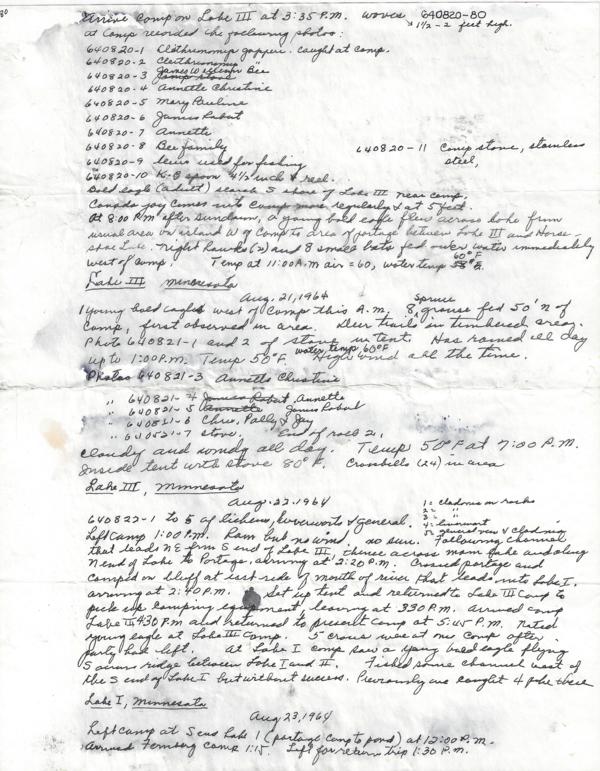 80
Arrive camp on Lake III at 3:35 P.M. waves 640820-80
1½-2 feet high.
at camp recorded the following photos:
640820-1 Clethrionomys gapperi caught at camp.
640820-2 Clethrionomys
640820-3 Camp stove James Wilson Bee
640820-4 Annette Christine
640820-5 Mary Pauline
640820-6 James Robert
640820-7 Annette
640820-8 Bee family 640820-11 Camp stove, stainless
steel,
640820-9 lures used for fishing
640820-10 K-B spoon 4½ inch & reel.
Bald eagle (adult) search S shore of Lake III near camp,
Canada jay comes into camp more regularly & at 5 feet.
At 8:00 P.M. after sundown, a young bald eagle flew across lake from
usual area on island W of camp to area of portage between Lake III and Horse-
shoe Lake. Night hawks (2) and 8 small bats fed over water immediately
west of camp. Temp at 11:00 A.M. air = 60, water temp 58°F. 60°F
Lake III Minnesota
Aug. 21, 1964
1 Young bald eagle west of camp this A.M. 8 Spruce grouse fed 50' N of
camp, first observed in area. Deer trails in timbered area.
Photo 640821-1 and 2 of stove in tent. Has rained all day
up to 1:00 P.M. Temp 50°F. water temp 60°F High wind all the time.
Photos 640821-3 Annette Christine
" 640821-4 James Robert, Annette
" 640821-5 Annette James Robert
" 640821-6 Chris, Polly & Jay
" 640821-7 stove. End of roll 2,
Cloudy and windy all day. Temp 50°F at 7:00 P.M.
Inside tent with stove 80°F. Crossbills (24) in area
Lake III, Minnesota
Aug. 22, 1964
1 = cladonia on rocks
2 = "
3 = "
4 = liverwort
5 = general view & cladonia
640822-1 to 5 of lichens, liverworts & general.
Left camp 1:00 P.M. Rain but no wind. no sun. Following channel
that leads NE from S end of Lake III, thence across main lake and along
N end of Lake to Portage, arriving at 2:20 P.M. Crossed portage and
camped on bluff at east side of mouth of river that leads into Lake I,
arriving at 2:40 P.M. Set up tent and returned to Lake III camp to
pick up camping equipment, leaving at 3:30 P.M. Arrived camp
Lake III 4:30 P.M. and returned to present camp at 5:45 P.M. Noted
young eagle at Lake III camp. 5 crows were at our camp after
party had left. At Lake I camp saw a young bald eagle flying
S across ridge between Lake I and II. Fished some channel west of
the S end of Lake I but without success. Previously we caught 4 pike there
Lake I, Minnesota
Aug 23, 1964
Left camp at S end Lake 1 (portage camp to pond) at 12:00 P.M.
Arrived Fernberg camp 1:15. Left for return trip 1:30 P.M.